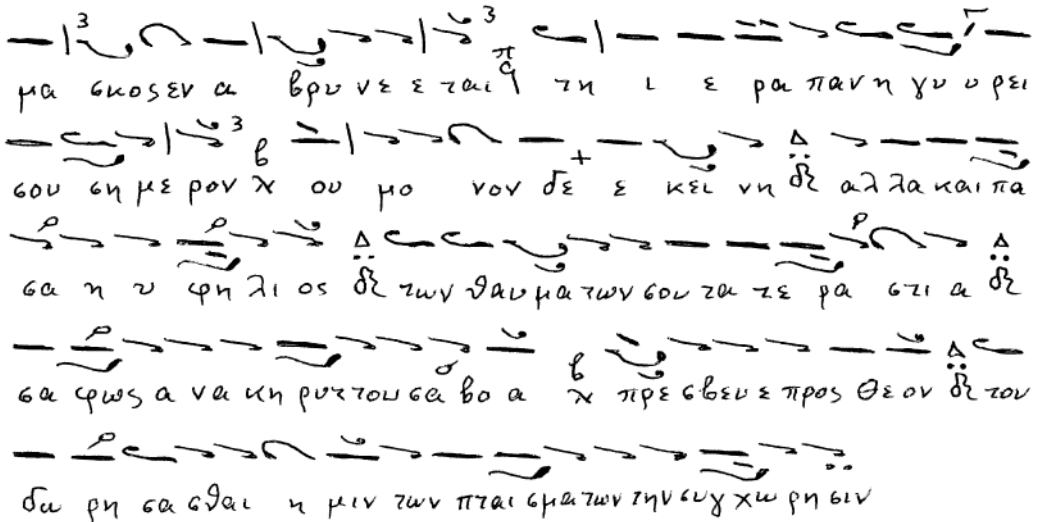 μα σκος εν α βρυ νε ε ται τη ι ε ρα παν η γυ υ ρει
σου ση με ρον ου μο νον δε ε κει νη αλ λα και πα
σα η υ ψη λι ος των θαυ μα των σου τα τε ρα στι α
σα φως α να κη ρυτ του σα βο α πρε σβευ ε προς Θε ον τον
δω ρη σα σθαι η μιν των πται σμα των την συγ χω ρη σιν